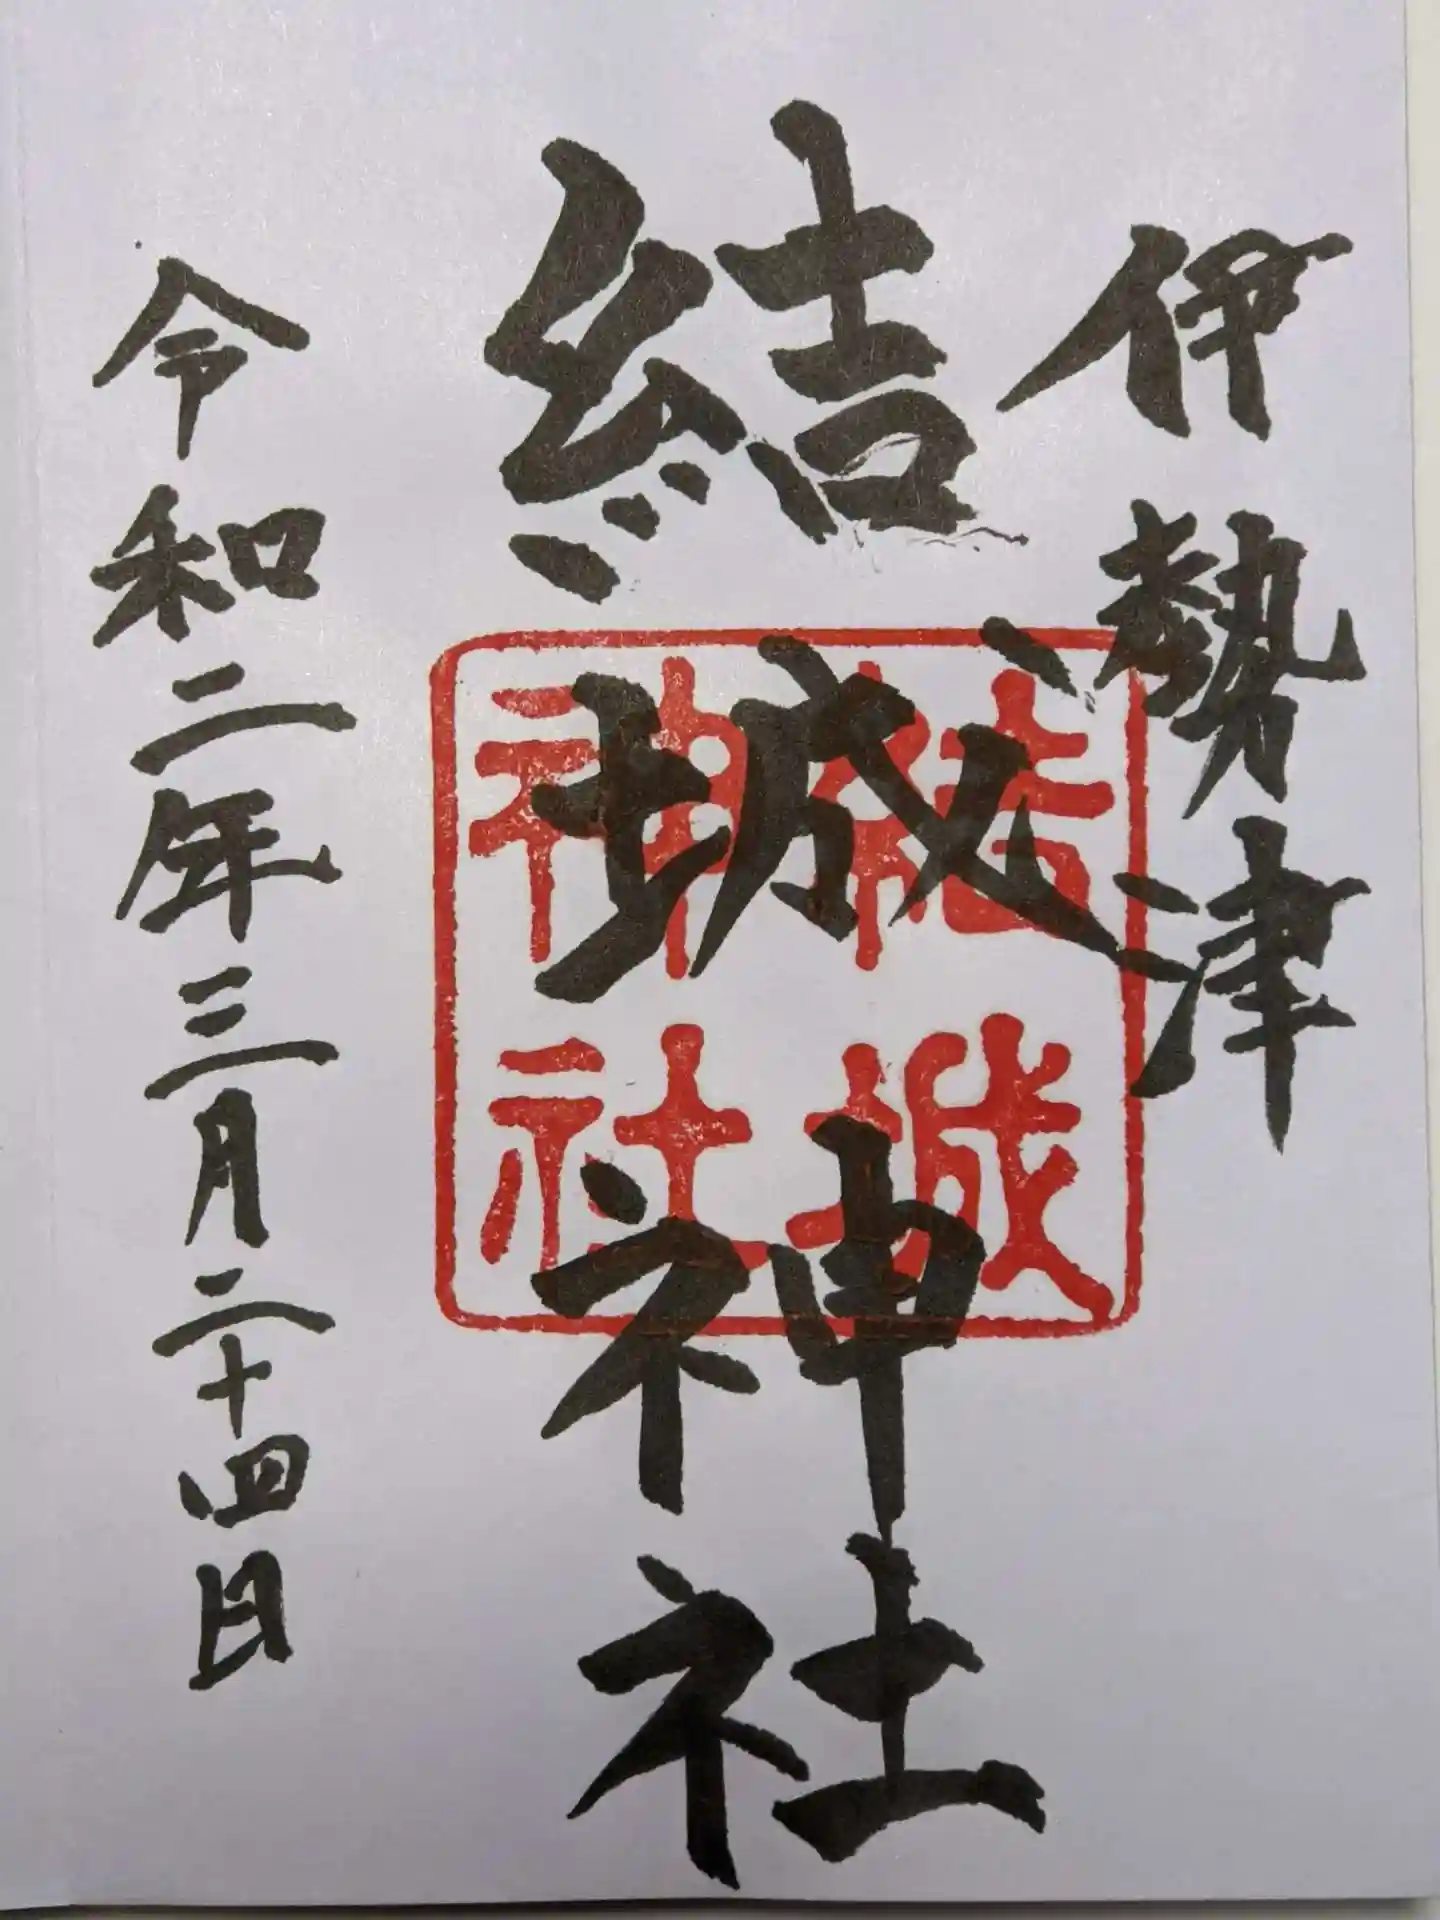 伊勢津
結城神社
結城神社
令和二年三月二十四日